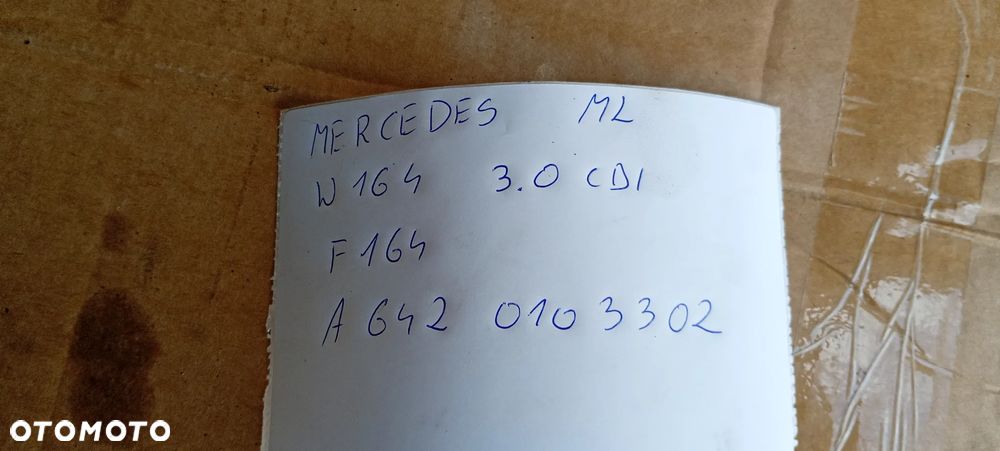 MERCEDES ML
W164 3.0 CDI
F164
A 642 010 3302
OTOMOTO